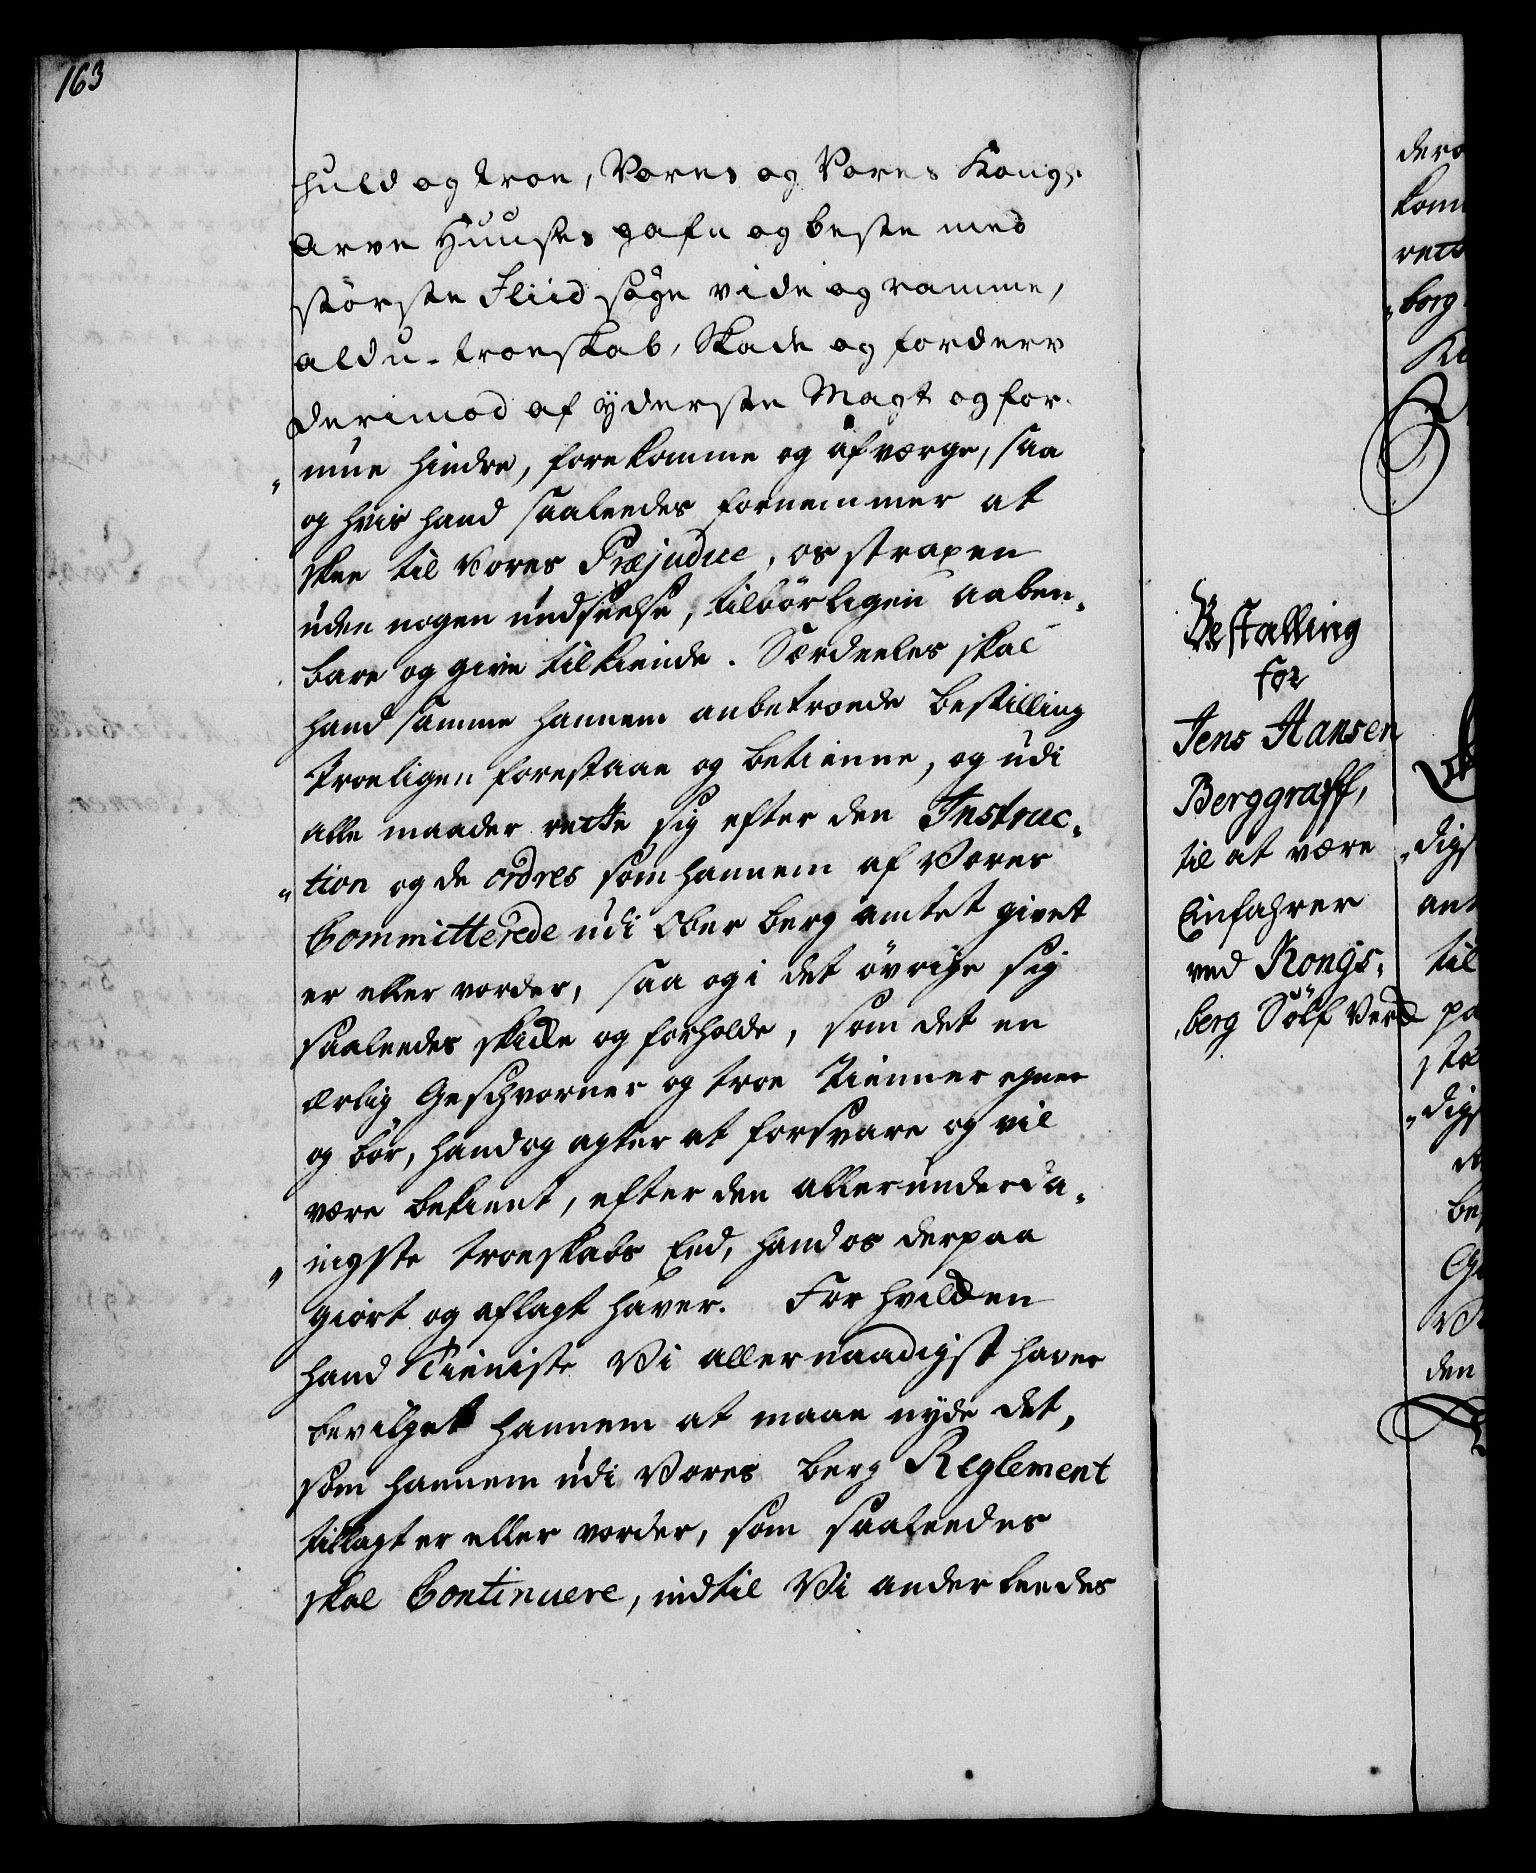 163
huld og troe, Vores og Vores Kongl.
Arve Huuses gafn og beste med
störste Fliid söge vide og ramme,
ald u-troeskab, Skade og forderv
derimod af yderste Magt og for-
„mue hindre, forekomme og afværge, saa
og hvis hand saaleedes fornemmer at
skee til Vores Præjudice, os straxen
uden nogen undseelse, tilbörligen aaben-
bare og give tilkiende. Særdeeles skal
hand samme hannem anbetroede bestilling
troeligen forestaae og betienne, og udi
alle maader rette sig efter den Instruc-
„tion og de ordres som hannem af Vores
Committerede udi Ober berg amtet givet
er eller vorder, saa og i det övrige sig
saaleedes skikke og forholde, som det en
ærlig Geschvorner og troe Tienner egner
og bör, hand og agter at forsvare og vil
være bekient, efter den allerunderda-
„nigste troeskabs Eed, hand os derpaa
giort og aflagt haver. For hvilcken
hand Tieniste Vi allernaadigst haver
bevilget hannem at maae nyde det,
som hannem udi Vores berg Reglement
tillagt er eller vorder, som saaleedes
skal Continuere, indtil Vi anderleedes
Bestalling
for
Jens Hansen
Berggraff,
til at være
Einfahrer
ved Kongs-
„berg Sölf Verck
den